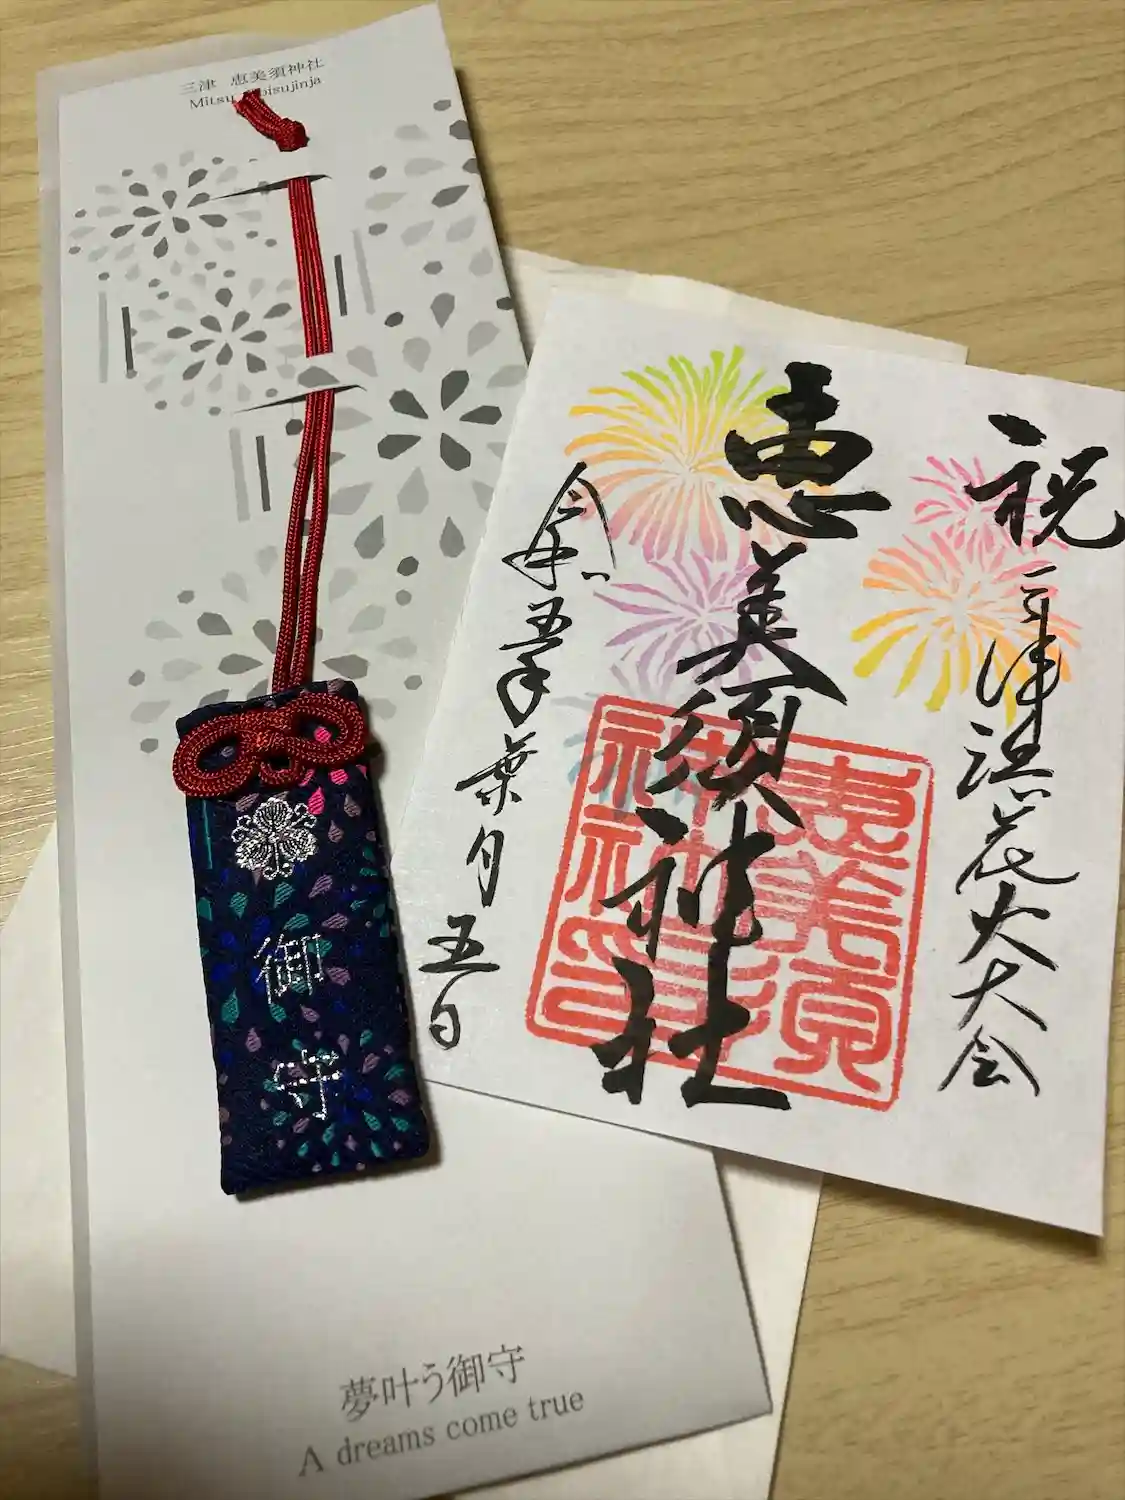 三津 恵美須神社
Mitsu Ebisujinja
御守
夢叶う御守
A dreams come true
祝 三津浜花火大会
恵美須神社
恵美須
神社
令和五年葉月五日